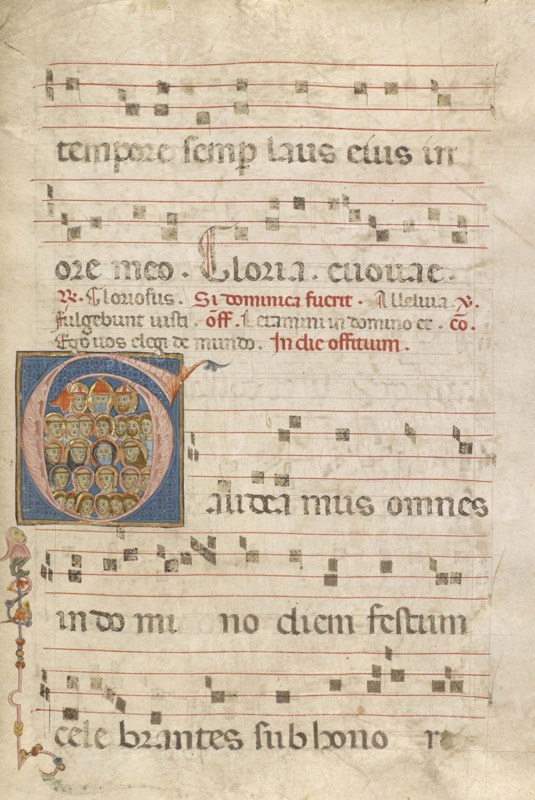 tempore semp laus eius in
ore meo. Gloria. euouae.
R. Gloriosus. Si dominica fuerit. Alleluia. V.
Fulgebunt iusti. off. Letamini in domino et. co.
Ego uos elegi de mundo. In die offitium.
Gaudea mus omnes
in do mi no diem festum
cele brantes sub hono r